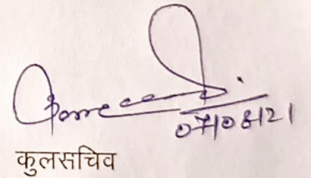 07/08/21
कुलसचिव